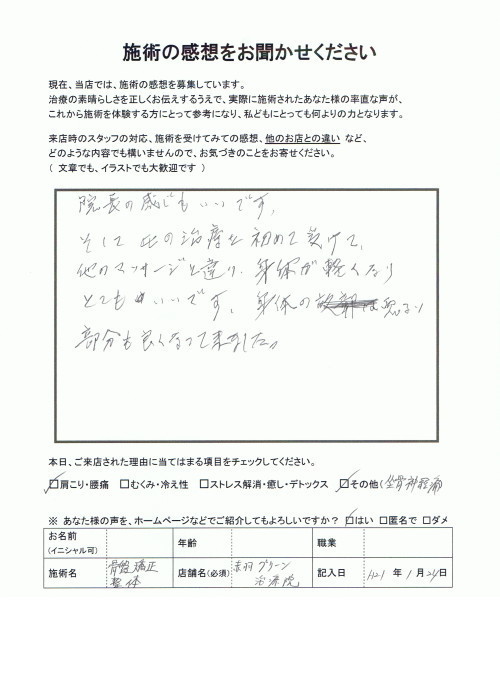 施術の感想をお聞かせください
現在、当店では、施術の感想を募集しています。
治療の素晴らしさを正しくお伝えするうえで、実際に施術されたあなた様の率直な声が、
これから施術を体験する方にとって参考になり、私どもにとっても何よりの力となります。
来店時のスタッフの対応、施術を受けてみての感想、他のお店との違い など、
どのような内容でも構いませんので、お気づきのことをお寄せください。
（ 文章でも、イラストでも大歓迎です ）
院長の感じもいいです。
そして此の治療を初めて受けて、
他のマッサージと違い、身体が軽くなり
とてもいいです。身体の悪るい
部分も良くなって来ました。
本日、ご来店された理由に当てはまる項目をチェックしてください。
□肩こり・腰痛 □むくみ・冷え性 □ストレス解消・癒し・デトックス □その他（坐骨神経痛）
※ あなた様の声を、ホームページなどでご紹介してもよろしいですか？ □はい □匿名で □ダメ
お名前 (イニシャル可) 年齢 職業
施術名 骨盤矯正 整体 店舗名(必須) 赤羽グリーン治療院 記入日 年 1月 日